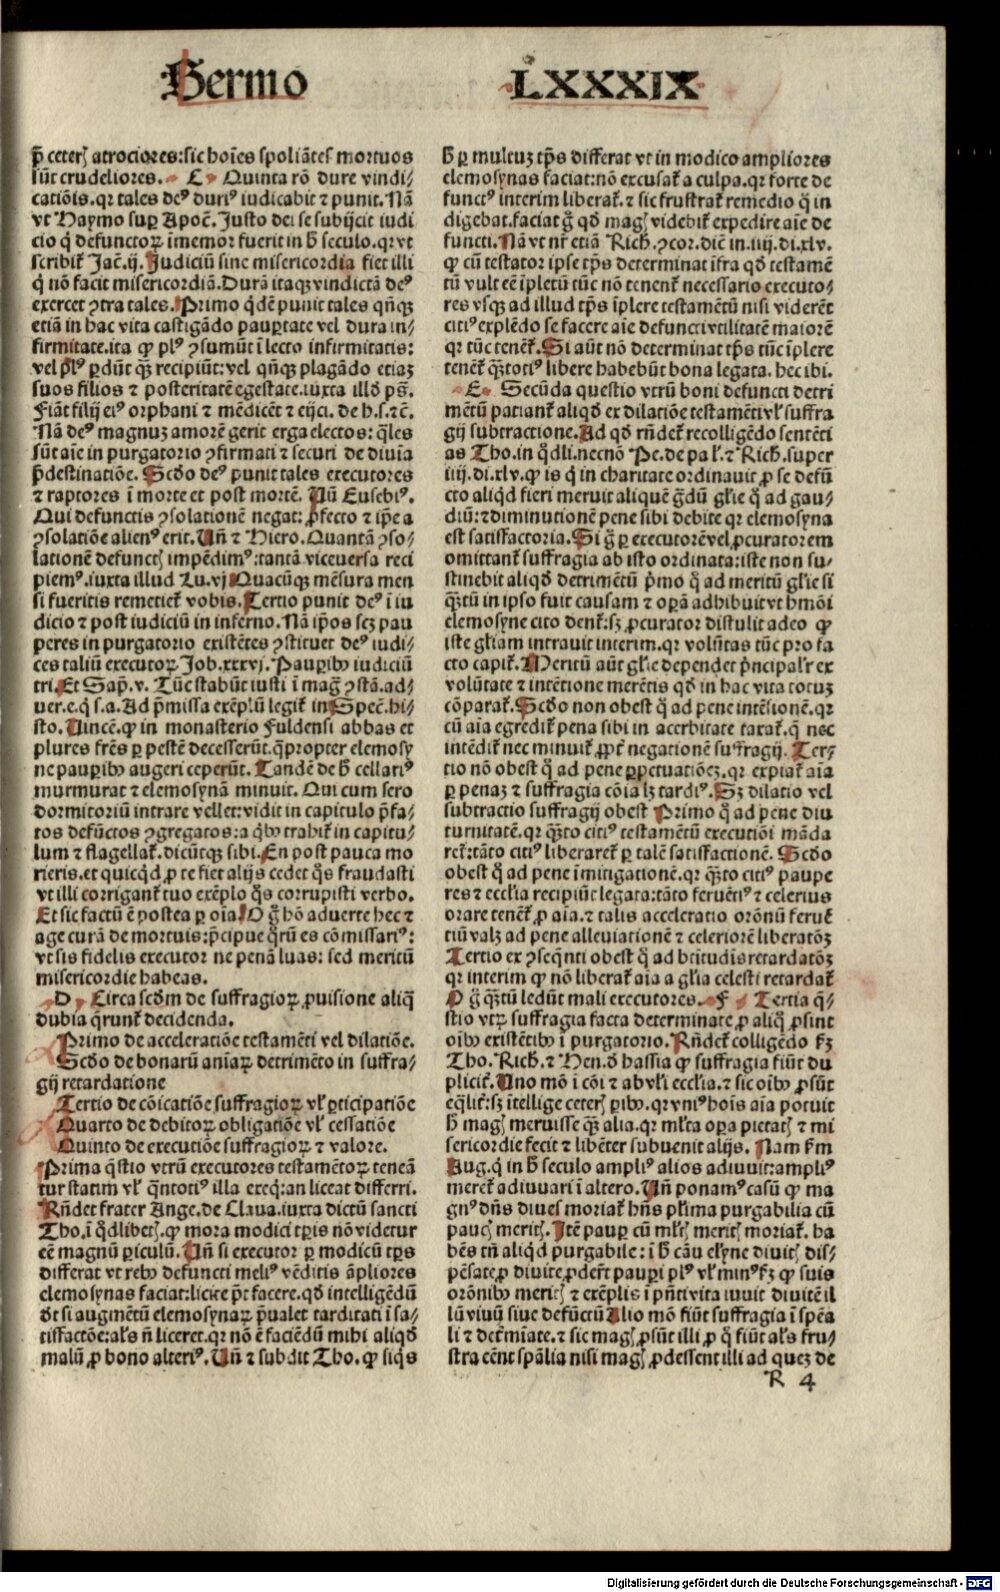 Sermo LXXXIX
p̄ ceteri atrociores: sic hoīes spoliātes mortuos
sūt crudeliores. C Quinta rō dure vindi/
catiōis. qr tales deꝰ duriꝰ iudicabit ⁊ punit. Nā
vt Haymo suꝑ Apoc̄. Justo dei se subijcit iudi
cio q̇ defunctoꝝ īmemor fuerit in h̄ seculo. qr vt
scribit᷑ Jac̄. ij. Judiciū sine misericordia fiet illi
q̇ nō facit misericordiā. Durā itaqꝫ vindictā deꝰ
exercet ꝯtra tales. Primo qͥdē punit tales qn̄qꝫ
etiā in hac vita castigādo pauꝑtate vel dura in/
firmitate. ita ꝙ plꝰ ꝯsumūt ī lecto infirmitatis:
vel plꝰ ꝑdūt qꝫ̄ recipiūt: vel qn̄qꝫ plagādo etiaꝫ
suos filios ⁊ posteritatē egestate. iuxta illd̓ ps̄.
Fiāt filij eiꝰ orphani ⁊ mēdicēt ⁊ eijci. de h. s. ⁊c̄.
Nā deꝰ magnuꝫ amorē gerit erga electos: q̄les
sūt aīe in purgatorio ꝯfirmati ⁊ securi de diuīa
p̄destinatiōe. Scd̓o deꝰ punit tales executores
⁊ raptores ī morte et post mortē. Un̄ Eusebiꝰ.
Qui defunctis ꝯsolationē negat: ꝓfecto ⁊ ip̄e a
ꝯsolatiōe alienꝰ erit. Un̄ ⁊ Hiero. Quantā ꝯso/
lationē defunctꝭ impēdimꝰ: tantā viceversa reci
piemꝰ. iuxta illud Lu. vj Quacūqꝫ mēsura men
si fueritis remetiet᷑ vobis. Tertio punit deꝰ ī iu
dicio ⁊ post iudiciū in inferno. Nā ip̄os scꝫ pau
peres in purgatorio existētes ꝯstituet deꝰ iudi/
ces taliū executoꝝ. Job. xxxvj. Pauꝑibꝰ iudiciū
tri. Et Sap̄. v. Tūc stabūt iusti ī maḡ ꝯstā. ad/
uer. e. q̇ s. a. Ad p̄missa exēplū legit᷑ in Spec̄. hi/
sto. Uincē. ꝙ in monasterio Fuldensi abbas et
plures fr̄es ꝑ pestē decesserūt. q̄propter elemosy
ne pauꝑibꝰ augeri ceperūt. Tandē de h̄ cellariꝰ
murmurat ⁊ elemosynā minuit. Qui cum sero
dormitoriū intrare vellet: vidit in capitulo p̄fa/
tos defūctos ꝯgregatos: a qͥbꝰ trahit᷑ in capitu/
lum ⁊ flagellat᷑. dicūtqꝫ sibi. En post pauca mo
rieris. et quicqͥd ꝓ te fiet alijs cedet q̇s fraudasti
vt illi corrigant᷑ tuo exēplo q̇s corrupisti verbo.
Et sic factū ē postea ꝑ oīa. O g̊ hō aduerte hec ⁊
age curā de mortuis: p̄cipue q̊ꝝ es cōmissariꝰ:
vt sis fidelis executor ne penā luas: sed meritū
misericordie habeas.
D Circa scd̓m de suffragioꝝ ꝓuisione aliq̄
dubia q̄runt᷑ decidenda.
Primo de acceleratiōe testamēti vel dilatiōe.
Scd̓o de bonarū aniaꝝ detrimēto in suffra/
gij retardatione
Tertio de cōicatiōe suffragioꝝ vl̓ ꝑticipatiōe
Quarto de debitoꝝ obligatiōe vl̓ cessatiōe
Quinto de executiōe suffragioꝝ ⁊ valore.
Prima q̄stio vtrū executores testamētoꝝ teneā
tur statim vl̓ q̄ntotiꝰ illa exeq̇: an liceat differri.
Rn̄det frater Ange. de Claua. iuxta dictū sancti
Tho. ī qͦdlibetꝭ. ꝙ mora modici tꝑis nō videtur
eē magnū ꝑiculū. Un̄ si executor ꝑ modicū tꝑs
differat vt rebꝰ defuncti meliꝰ vēditis āpliores
elemosynas faciat: licite p̄t facere. qd̓ intelligēdū
d̄t si augmētū elemosynaꝝ p̄ualet tarditati ī sa/
tisfactōe: al̓s n̄ liceret. qr nō ē faciēdū mihi aliqd̓
malū ꝓ bono alteriꝰ. Un̄ ⁊ subdit Tho. ꝙ siq̇s
h̄ ꝑ multuꝫ tꝑs differat vt in modico ampliores
elemosynas faciat: nō excusat᷑ a culpa. qr forte de
functꝰ interim liberat᷑. ⁊ sic frustrat᷑ remedio q̊ in
digebat. faciat g̊ qd̓ magꝭ videbit᷑ expedire aīe de
functi. Nā vt nr̄ etiā Rich. ꝯcor. dic̄ in. iiij. di. xlv.
ꝙ cū testator ipse tꝑs determinat īfra qd̓ testamē
tū vult eē īpletū tūc nō tenent᷑ necessario executo/
res vsqꝫ ad illud tꝑs īplere testamētū nisi viderēt
citiꝰ explēdo se facere aīe defuncti vtilitatē maiorē
qr tūc tenēt᷑. Si aūt nō determinat tꝑs tūc īplere
tenēt᷑ qꝫ̄totiꝰ libere habebūt bona legata. hec ibi.
E Secūda questio vtrū boni defuncti detri
mētū patiant᷑ aliqd̓ ex dilatiōe testamēti vl̓ suffra
gij subtractione. Ad qd̓ rn̄det᷑ recolligēdo sentēti
as Tho. in qͦdli. necnō Pe. de pal̓. ⁊ Rich. super
iiij. di. xlv. ꝙ is q̇ in charitate ordinauit ꝓ se defū
cto aliqd̓ fieri meruit aliquē g̊dū gl̓ie q̊ ad gau/
diū: ⁊ diminutionē pene sibi debite qr elemosyna
est satisfactoria. Si g̊ ꝑ executorē vel ꝓcuratorem
omittant᷑ suffragia ab isto ordinata: iste non su/
stinebit aliqd̓ detrimētū pͥmo q̊ ad meritū gl̓ie si
qꝫ̄tū in ipso fuit causam ⁊ oꝑā adhibuit vt hmōi
elemosyne cito dent᷑: sꝫ ꝓcurator distulit adeo ꝙ
iste gl̓iam intrauit interim. qr volūtas tūc pro fa
cto capit᷑. Meritū aūt gl̓ie dependet pͥncipal̓r ex
volūtate ⁊ intētione merētis qd̓ in hac vita totuꝫ
cōparat᷑. Scd̓o non obest q̊ ad pene intēsionē. qr
cū aīa egredit᷑ pena sibi in acerbitate taxat᷑. q̄ nec
intēdit᷑ nec minuit᷑ ꝓpt̄ negationē suffragij. Ter/
tio nō obest q̊ ad pene ꝑpetuatiōeꝫ. qr expiat᷑ aīa
ꝑ penaꝫ ⁊ suffragia cōia lꝫ tardiꝰ. Sꝫ dilatio vel
subtractio suffragij obest Primo q̊ ad pene diu
turnitatē. qr qꝫ̄to citiꝰ testamētū executiōi māda
ret᷑: tāto citiꝰ liberaret᷑ ꝑ talē satisfactionē. Scd̓o
obest q̊ ad pene īmitigationē. qr qꝫ̄to citiꝰ paupe
res ⁊ eccl̓ia recipiūt legata: tāto feruētiꝰ ⁊ celerius
orare tenēt᷑ ꝓ aīa. ⁊ talis acceleratio orōnū feruē
tiū valꝫ ad pene alleuiationē ⁊ celeriorē liberatōꝫ
Tertio ex ꝯseq̄nti obest q̊ ad btitudīs retardatōꝫ
qr interim ꝙ nō liberat᷑ aīa a gl̓ia celesti retardat᷑
O g̊ qꝫ̄tū ledūt mali executores. F Tertia q̄/
stio vtꝝ suffragia facta determinate ꝓ aliq̊ ꝓsint
oībꝰ existētibꝰ ī purgatorio. Rn̄det᷑ colligēdo fꝫ
Tho. Rich. ⁊ Hen. d̓ hassia ꝙ suffragia fiūt du
plicit᷑. Uno mō ī cōi ⁊ ab vl̓i eccl̓ia. ⁊ sic oībꝰ ꝓsūt
eq̄lit᷑: sꝫ ītellige ceterꝭ ꝑibꝰ. qr vniꝰ hoīs aīa potuit
h̄ magꝭ meruisse qꝫ̄ alia. qr ml̓ta oꝑa pietatꝭ ⁊ mi
sericordie fecit ⁊ libēter subuenit alijs. Nam fm̄
Aug. q̇ in h̄ seculo ampliꝰ alios adiuuit: ampliꝰ
meret᷑ adiuuari ī altero. Un̄ ponamꝰ casū ꝙ ma
gnꝰ dn̄s diues moriat᷑ hn̄s pl̓ima purgabilia cū
paucꝭ meritꝭ. Itē pauꝑ cū ml̓tꝭ meritꝭ moriat᷑. ha
bēs tn̄ aliqd̓ purgabile: ī h̄ cāu el̓yne diuitꝭ dis/
pēsate ꝓ diuite ꝓdert̄ pauꝑi plꝰ vl̓ minꝰ fꝫ ꝙ suis
orōnibꝰ meritꝭ ⁊ exēplis ī pn̄ti vita iuuit diuitē il
lū viuū siue defūctū Alio mō fiūt suffragia ī spēa
li ⁊ detͤmīate. ⁊ sic magꝭ ꝓsūt illi ꝓ q̊ fiūt al̓s fru/
stra eēnt spālia nisi magꝭ ꝓdessent illi ad queꝫ de
R 4
Digitalisierung gefördert durch die Deutsche Forschungsgemeinschaft - DFG